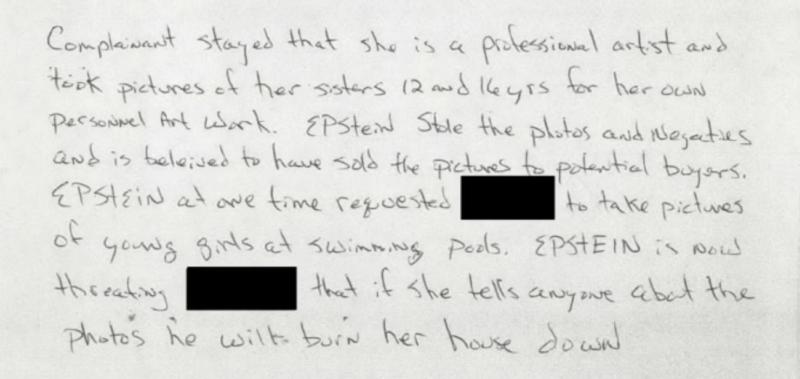 Complainant stayed that she is a professional artist and
took pictures of her sisters 12 and 16 yrs for her own
Personnel Art Work. EPStein Stole the photos and Negaties
and is beleived to have sold the pictures to potential buyers.
EPStEiN at one time requested to take pictures
of young girls at swimming pools. EPStEIN is now
threating that if she tells anyone abot the
photos he will burn her house down